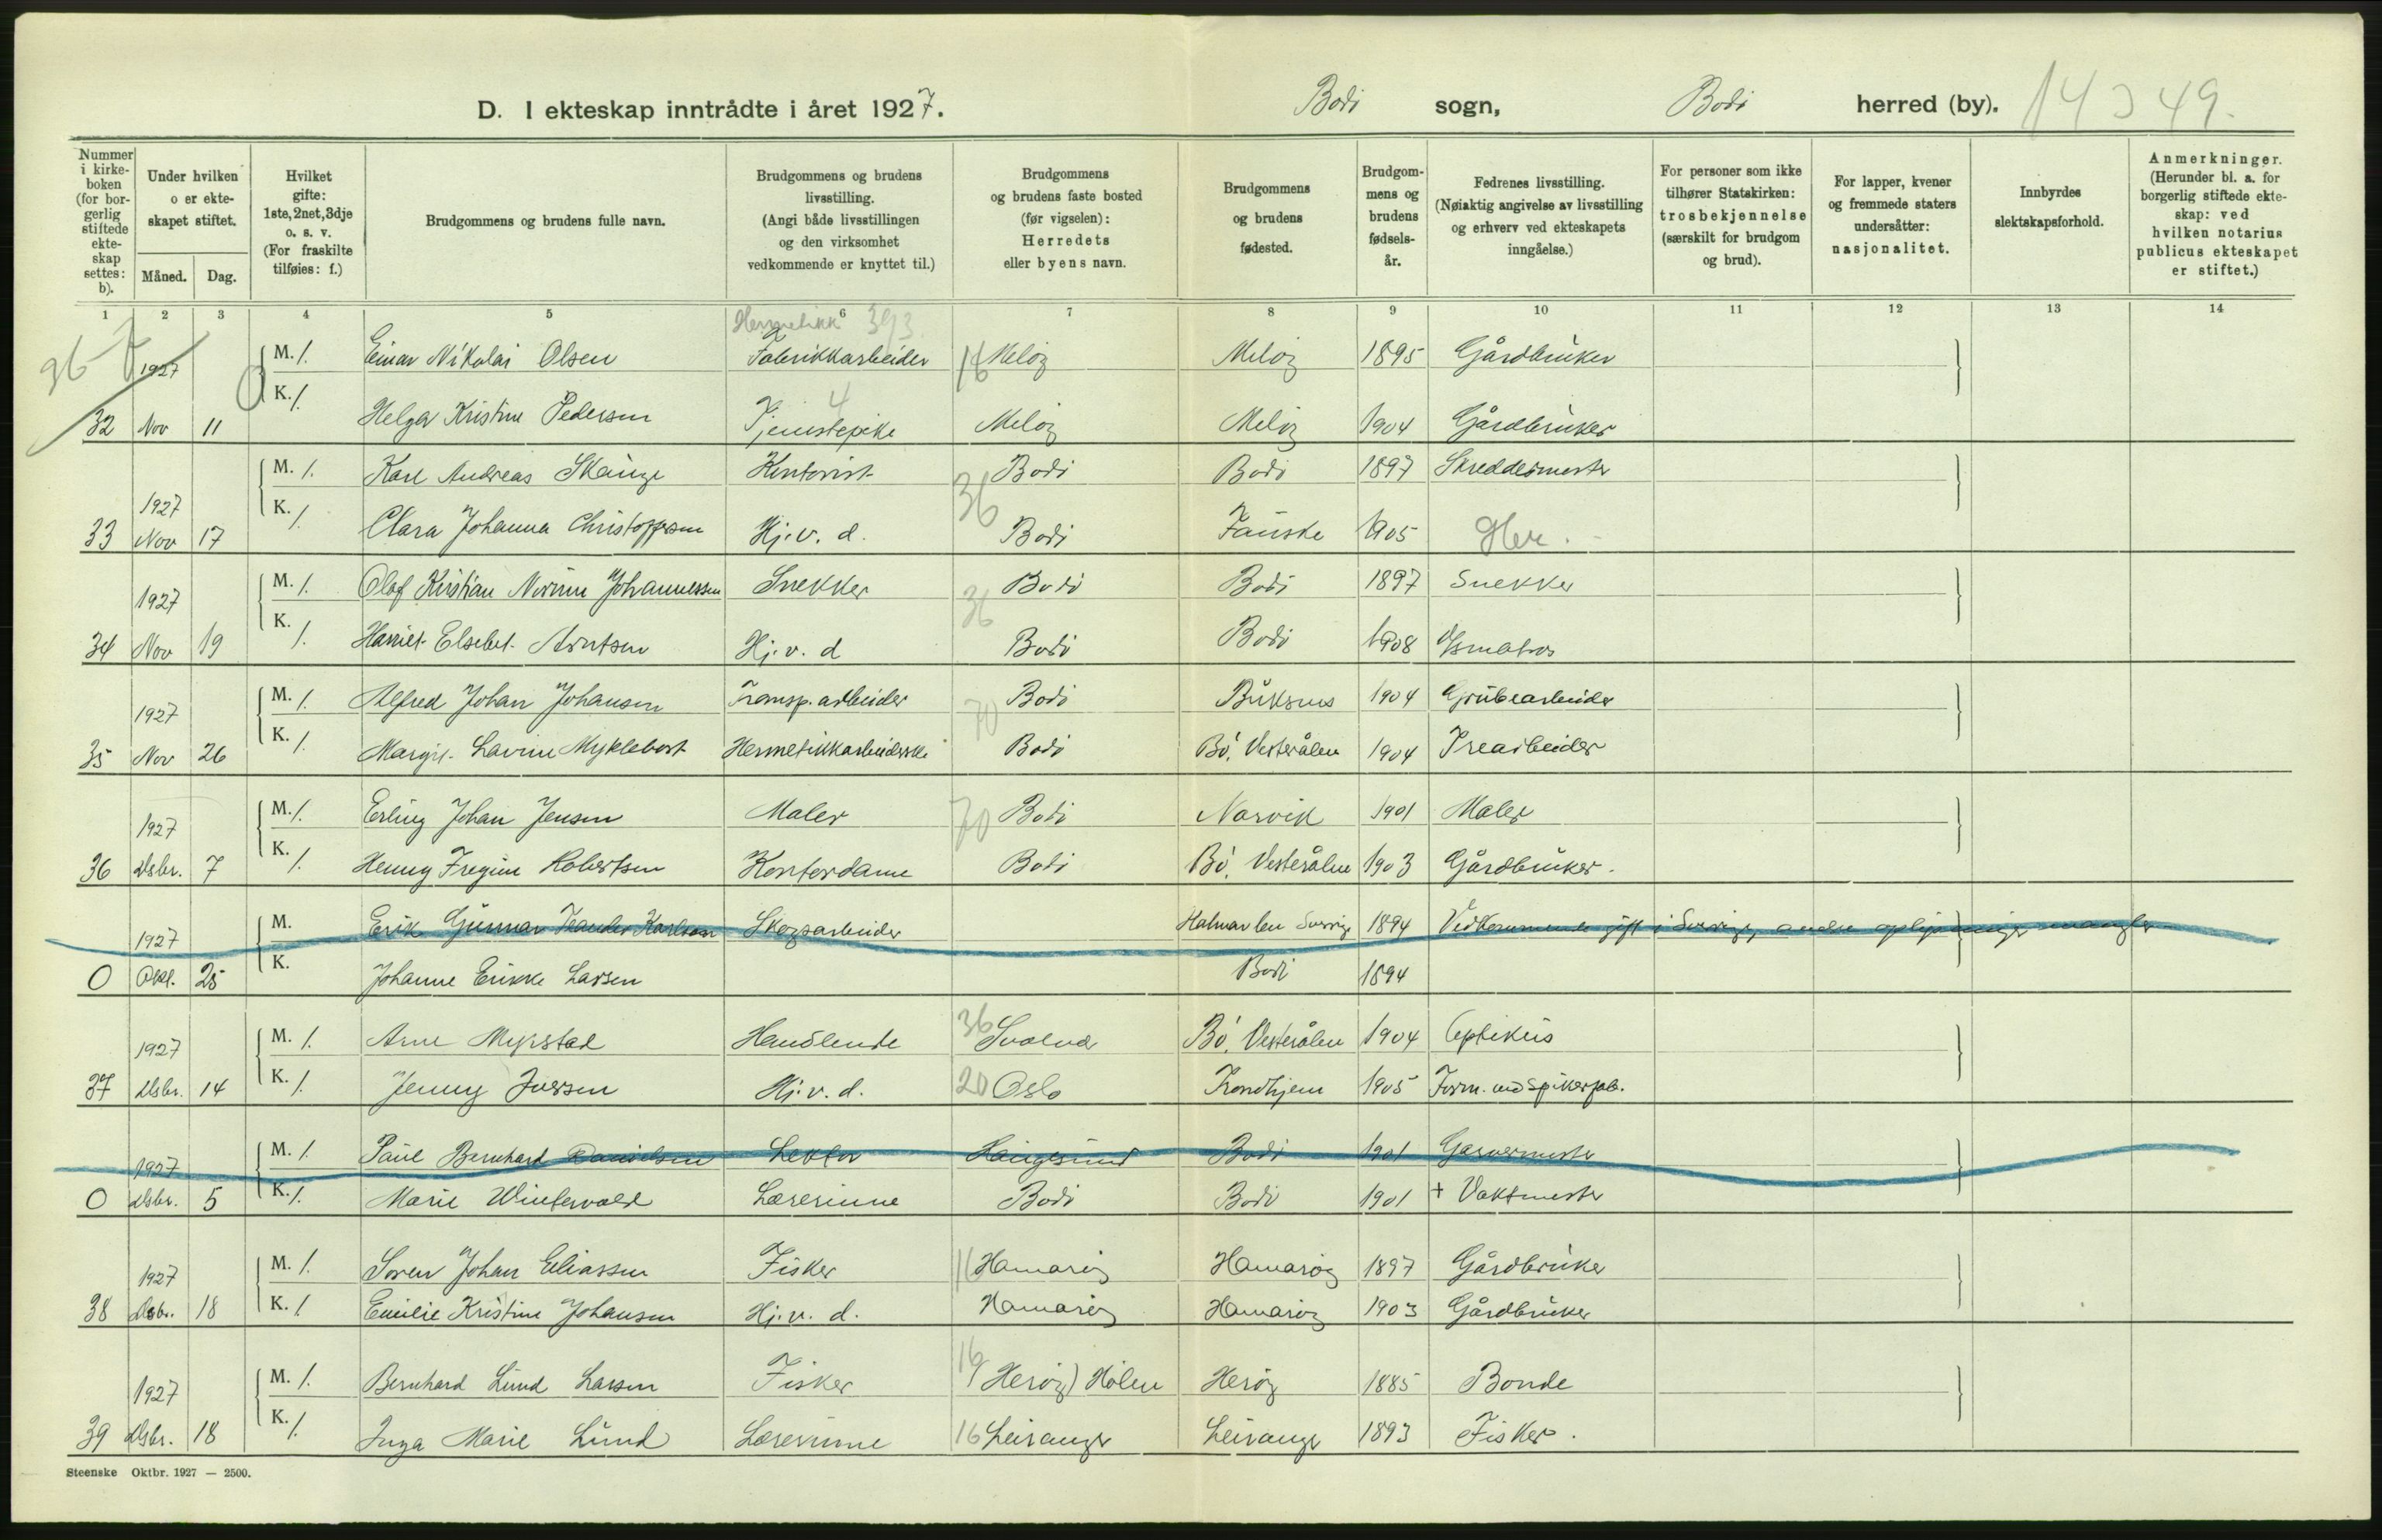 D. I ekteskap inntrådte i året 1927. Bodø sogn, Bodø herred (by). 14349.
Nummer i kirkeboken (for borgerlig stiftede ekteskap settes: b).
Under hvilken o er ekteskapet stiftet.
Måned. Dag.
Hvilket gifte: 1ste, 2net, 3dje o. s. v. (For fraskilte tilføies: f.)
Brudgommens og brudens fulle navn.
Brudgommens og brudens livsstilling. (Angi både livsstillingen og den virksomhet vedkommende er knyttet til.)
Brudgommens og brudens faste bosted (før vigselen): Herredets eller byens navn.
Brudgommens og brudens fødested.
Brudgommens og brudens fødselsår.
Fedrenes livsstilling. (Nøiaktig angivelse av livsstilling og erhverv ved ekteskapets inngåelse.)
For personer som ikke tilhører Statskirken: trosbekjennelse (særskilt for brudgom og brud).
For lapper, kvener og fremmede staters undersåtter: nasjonalitet.
Innbyrdes slektskapsforhold.
Anmerkninger. (Herunder bl. a. for borgerlig stiftede ekteskap: ved hvilken notarius publicus ekteskapet er stiftet.)
1 2 3 4 5 6 7 8 9 10 11 12 13 14
Hermetikk 393
1927 M. 1. Einar Nikolai Olsen Fabrikkarbeider 16 Meløy Meløy 1895 Gårdbruker
4
32 Nov 11 K. 1. Helga Kristine Pedersen Tjenestepike Meløy Meløy 1904 Gårdbruker
M. 1. Karl Andreas Skauge Kontorist Bodø Bodø 1897 Skreddermester
36
33 1927 Nov 17 K. 1. Clara Johanna Christoffersen Hj. v. d. Bodø Fauske 1905
M. 1. Olaf Kristian Normann Johannessen Snekker Bodø Bodø 1897 Snekker
36
34 1927 Nov 19 K. 1. Harriet Elsebet Arntsen Hj. v. d Bodø Bodø 1908
M. 1. Alfred Johan Johansen Transp. arbeider Bodø Buksnes 1904 Grubearbeider
70
35 1927 Nov 26 K. 1. Margit Lavine Myklebost Hermetikkarbeiderske Bodø Bø, Vesterålen 1904 Trearbeider
M. 1. Erling Johan Jensen Maler 70 Bodø Narvik 1901 Maler
36 1927 Dsbr. 7 K. 1. Henny Robertsen Kontordame Bodø Bø, Vesterålen 1903 Gårdbruker.
M. Erik Gunnar Karlsson Skogsarbeider Sverige 1894 Vedkommende gift i Sverige, andre oplysninger mangler
0 1927 Okt. 25 K. Johanne Erikke Larsen Bodø 1894
M. 1. Arne Myrstad Handlende 36 Svolvær Bø, Vesterålen 1904 Optikus
37 1927 Dsbr. 14 K. 1. Jenny Iversen Hj. v. d. 20 Oslo Trondhjem 1905 Form. ved Spikerfab.
M. 1. Paul Bernhard Danielsen Lektor Haugesund Bodø 1901 Garvermester
0 1927 Dsbr. 5 K. 1. Marie Wintervold Lærerinne Bodø Bodø 1901 + Vaktmester
M. 1. Søren Johan Eliassen Fisker 16 Hamarøy Hamarøy 1897 Gårdbruker
38 1927 Dsbr. 18 K. 1 Emilie Kristine Johansen Hj. v. d. Hamarøy Hamarøy 1903 Gårdbruker
M. 1. Bernhard Lund Larsen Fisker 16 (Herøy) Holen Herøy 1885 Bonde
39 1927 Dsbr. 18 K. 1. Inga Marie Lund Lærerinne 16 Leiranger Leiranger 1893 Fisker.
Steenske Oktbr. 1927 — 2500.